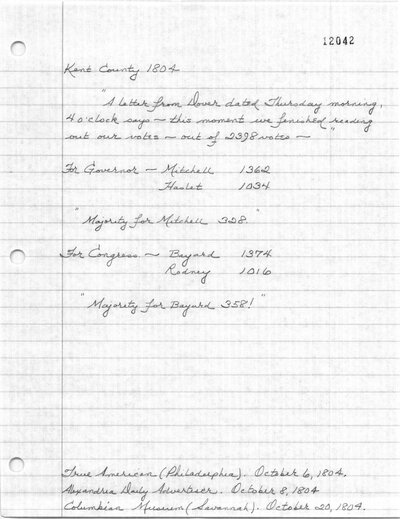 12042
Kent County 1804
"A letter from Dover dated Thursday morning,
4 o'clock says - this moment we finished reading
out our votes - out of 2398 votes - "
For Governor - Mitchell 1362
Haslet 1034
"Majority for Mitchell 328"
For Congress - Bayard 1374
Rodney 1016
"Majority for Bayard 358!"
True American (Philadelphia). October 6, 1804.
Alexandria Daily Advertiser. October 8, 1804
Columbian Museum (Savannah). October 20, 1804.